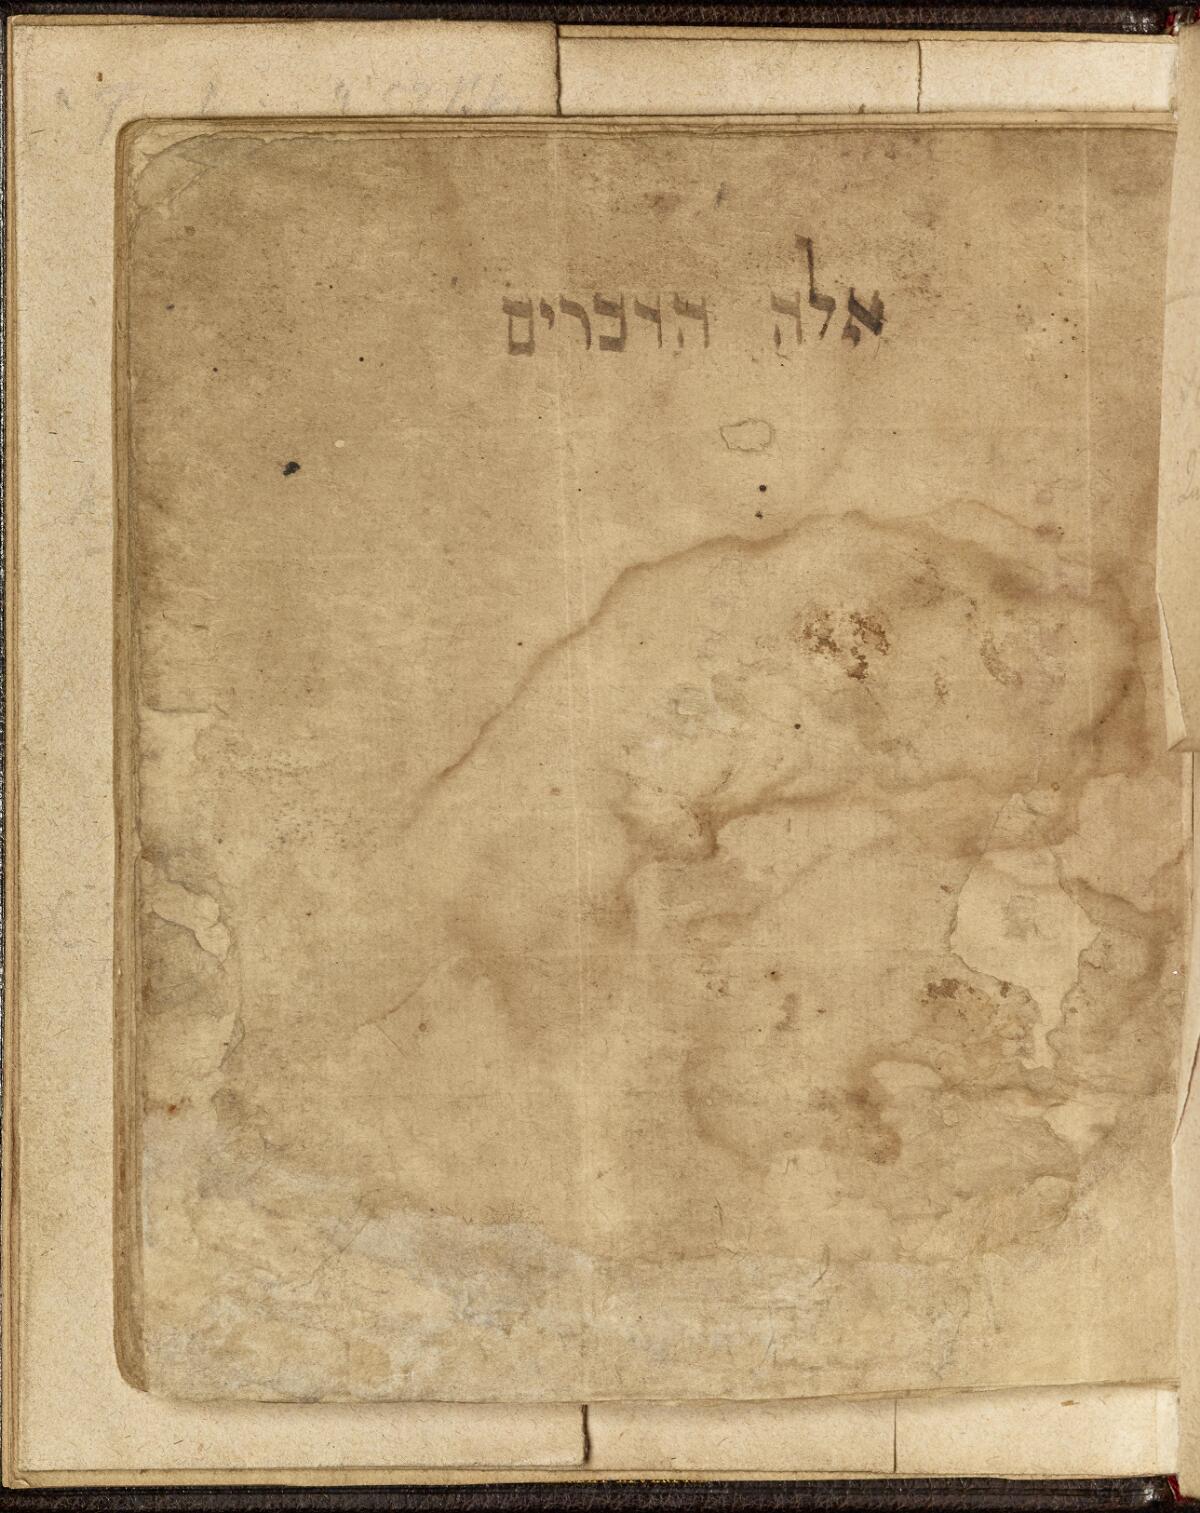 אלה הדברים